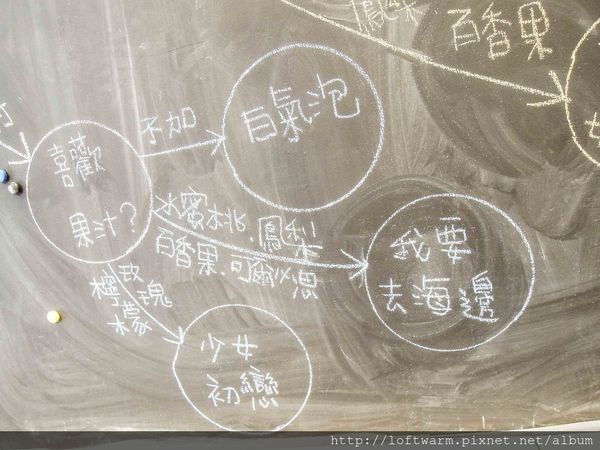 百香果
不如
白氣泡
喜歡
果汁?
水蜜桃、鳳梨
百香果、可爾必思
我要
去海邊
玫瑰
檸檬
少女
初戀
http://loftwarm.pixnet.net/album